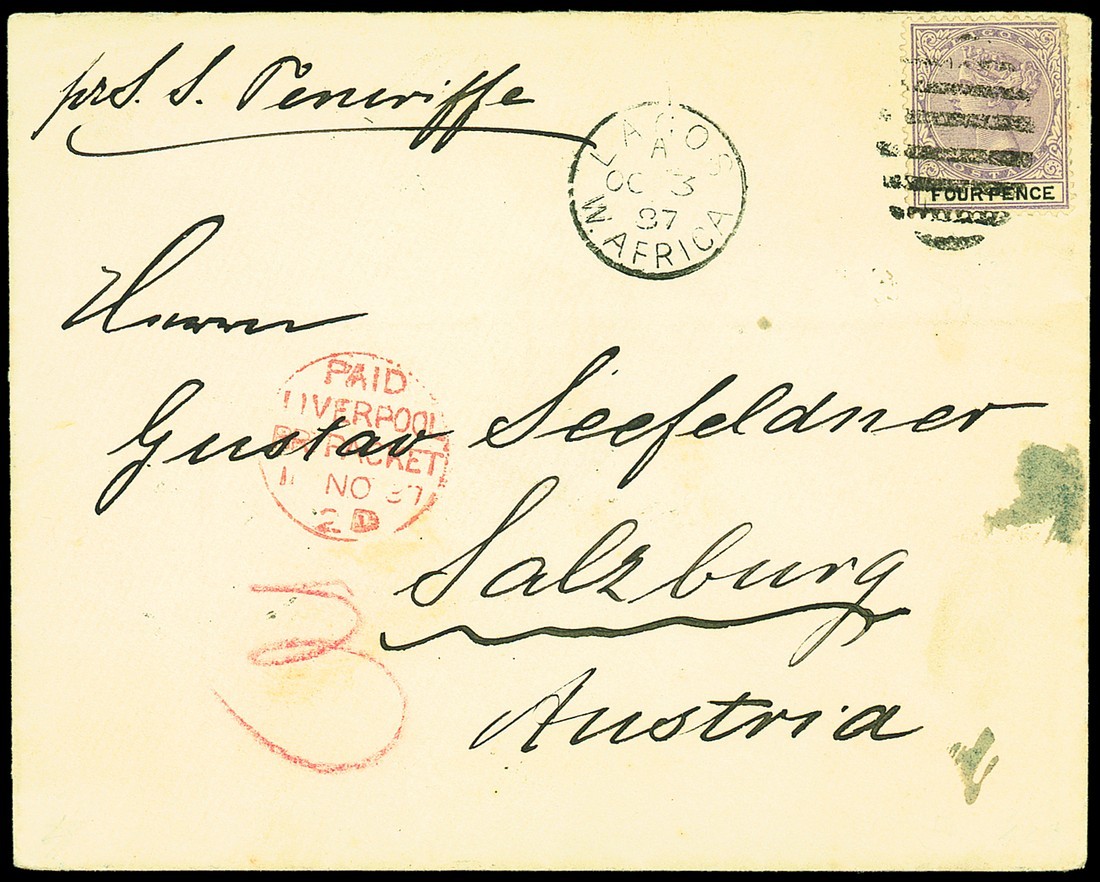 pr S. S. Teneriffe
LAGOS
A
OC 3
87
W. AFRICA
LAGOS
POSTAGE
FOUR PENCE
Herrn
Gustav Seefeldner
Salzburg
Austria
PAID
LIVERPOOL
BR. PACKET
1 NO 87
2D
3